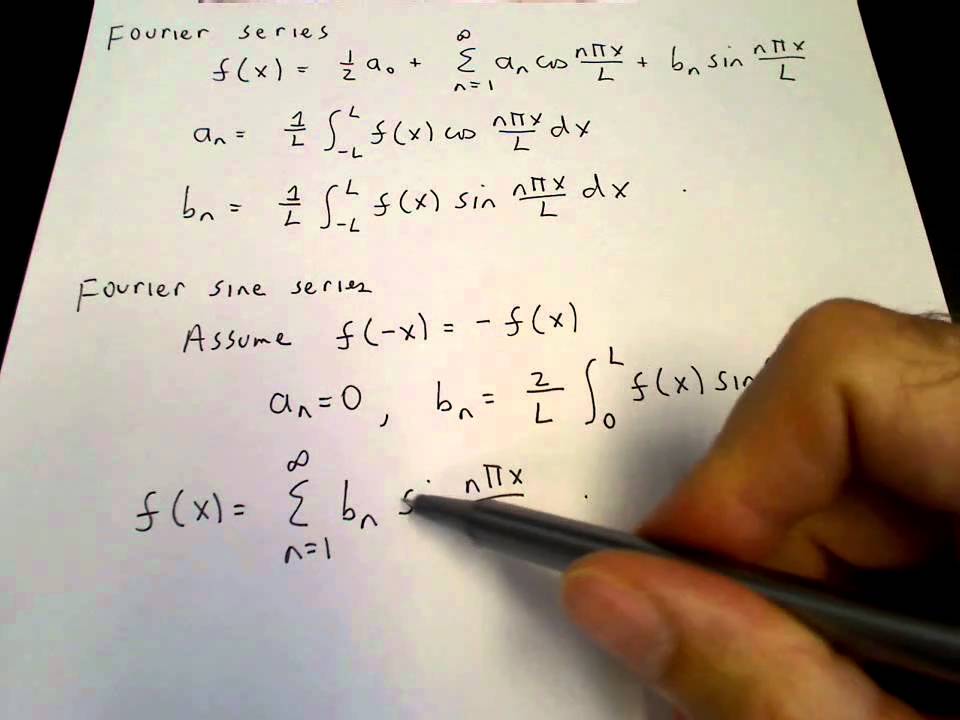 Fourier series
f(x) = 1/2 a₀ + ∞ Σ n=1 aₙ cos nπx/L + bₙ sin nπx/L
aₙ = 1/L ∫₋L^L f(x) cos nπx/L dx
bₙ = 1/L ∫₋L^L f(x) sin nπx/L dx
Fourier sine series
Assume f(-x) = - f(x)
aₙ = 0 , bₙ = 2/L ∫₀^L f(x) sin
f(x) = ∞ Σ n=1 bₙ nπx